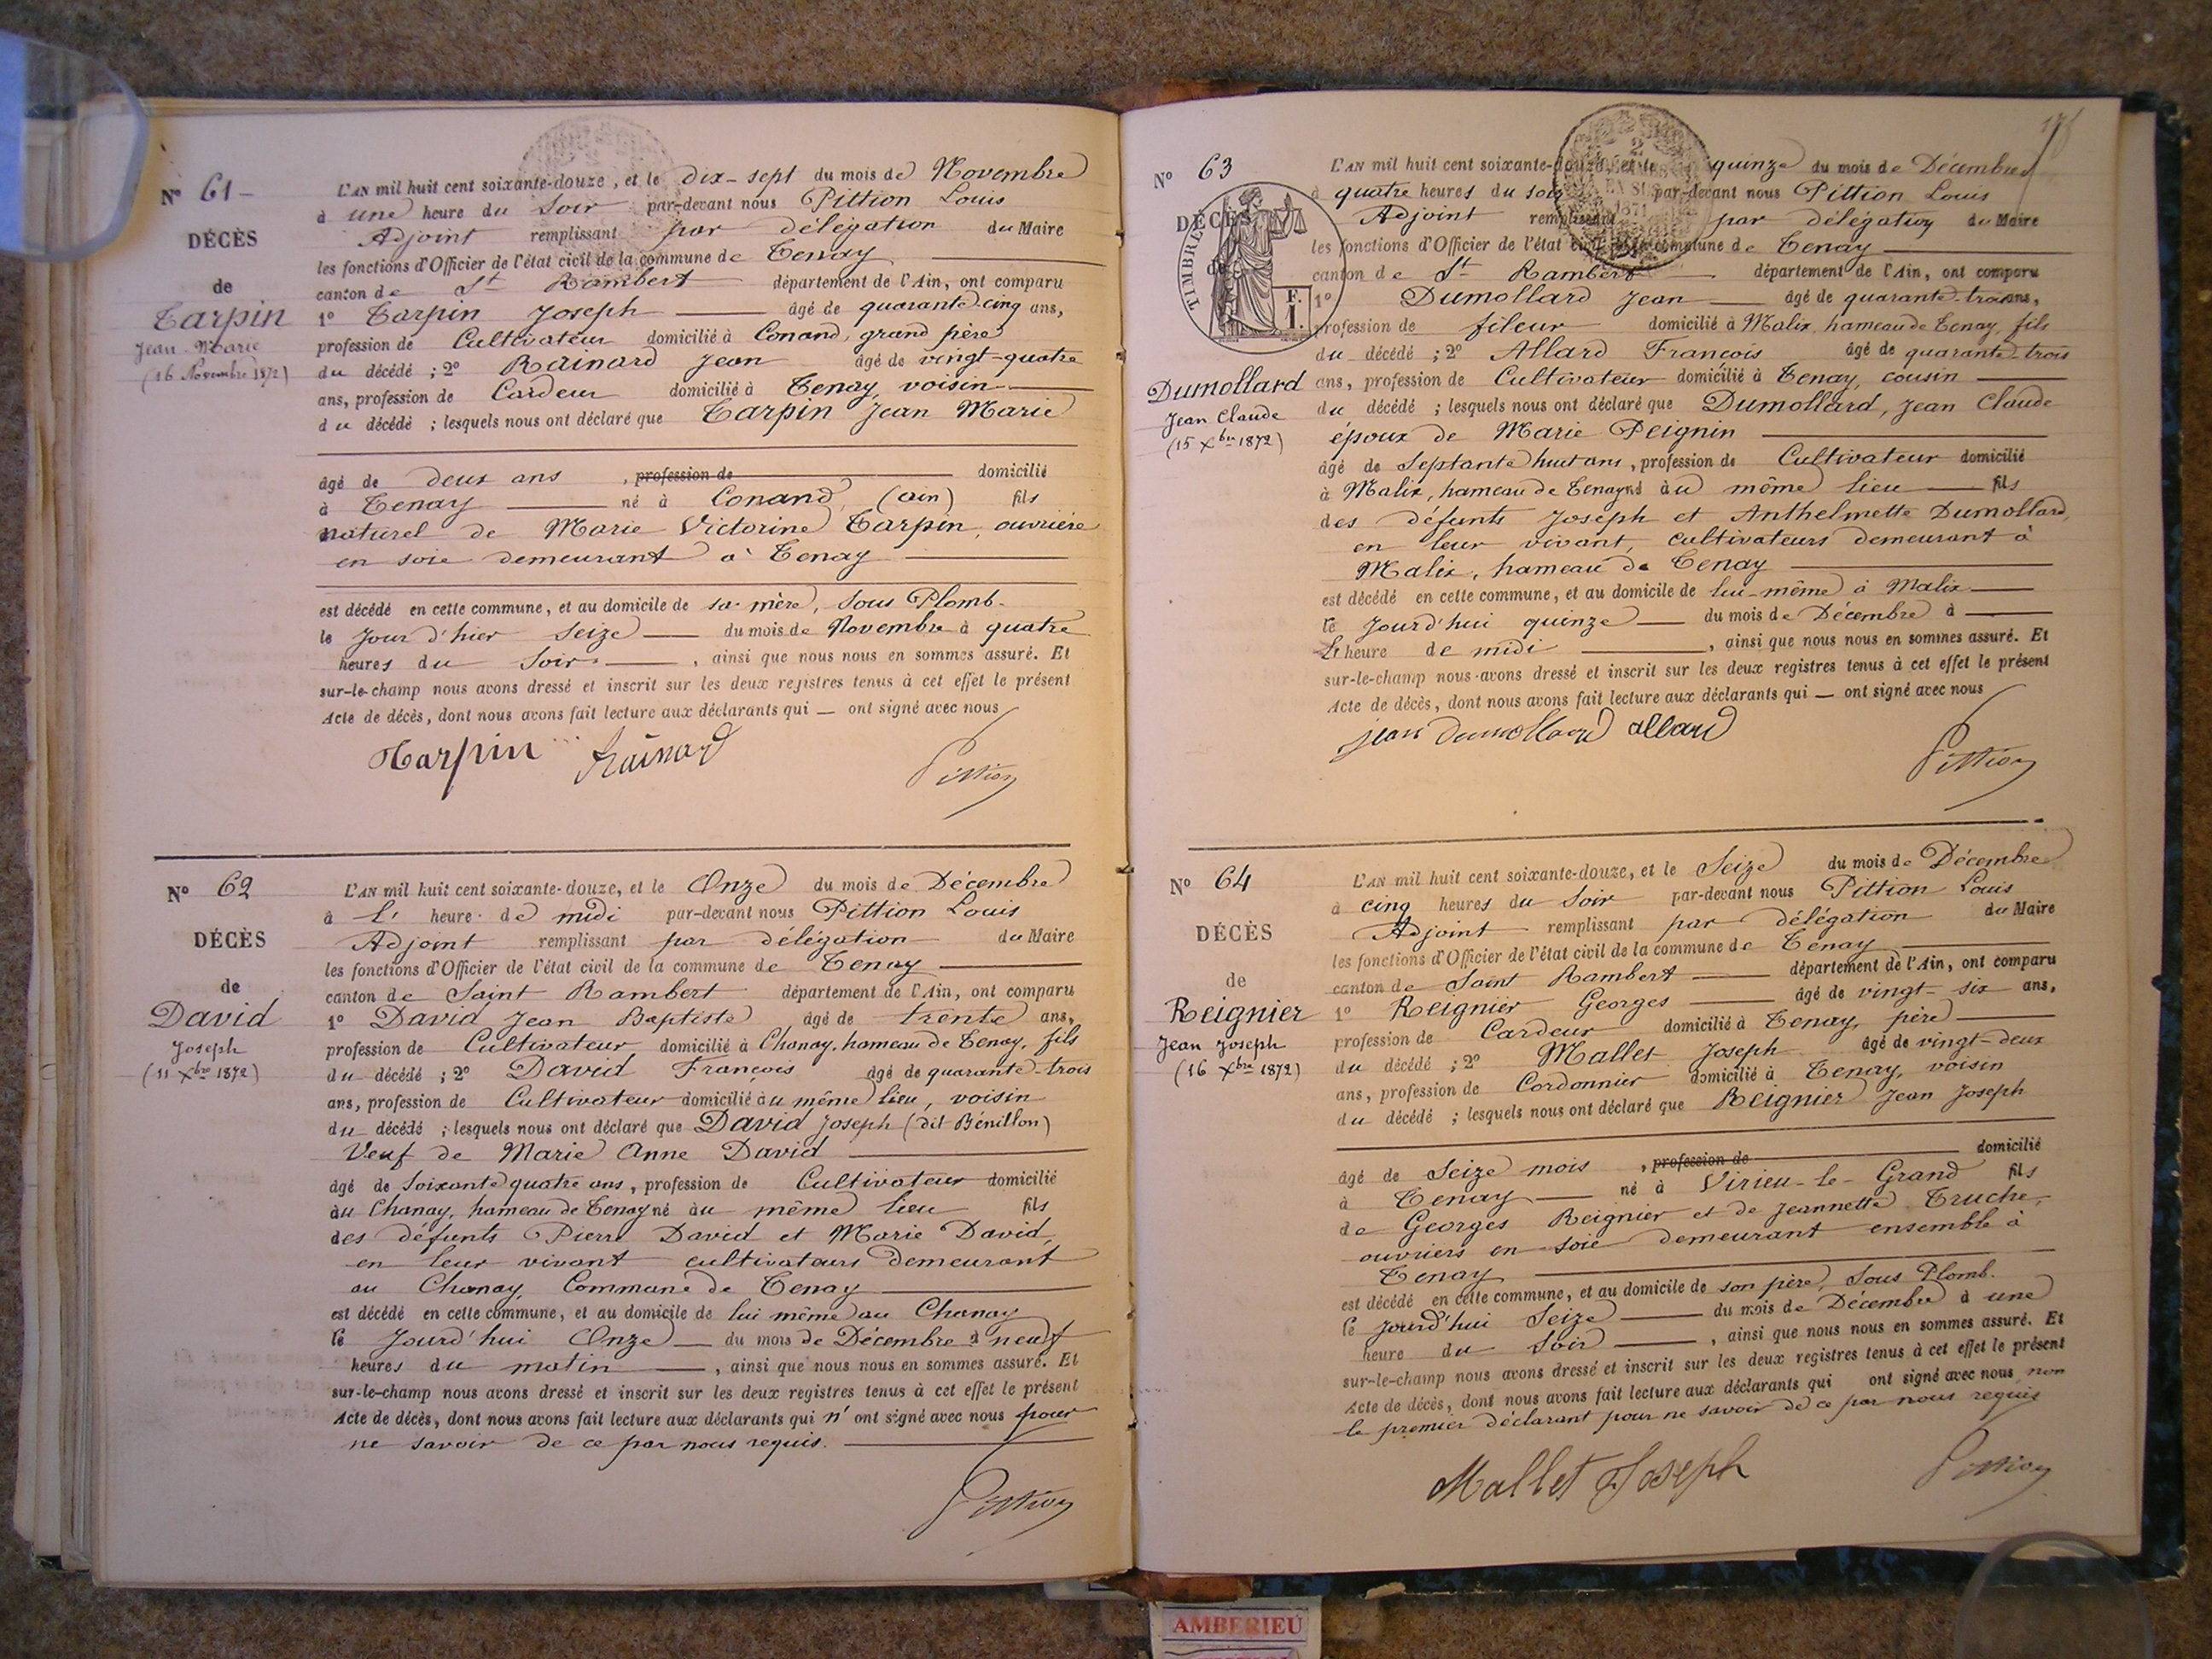 N° 61 -
DÉCÈS
de
Tarpin
Jean Marie
(16 Novembre 1872)
L'AN mil huit cent soixante-douze, et le dix-sept du mois de Novembre
à une heure du Soir par-devant nous Pittion Louis
Adjoint remplissant par délégation du Maire
les fonctions d'Officier de l'état civil de la commune de Tenay
canton de St Rambert département de l'Ain, ont comparu
1° Tarpin Joseph âgé de quarante-cinq ans,
profession de Cultivateur domicilié à Conand, grand père
du décédé ; 2° Rainard Jean âgé de vingt-quatre
ans, profession de Cardeur domicilié à Tenay, voisin
du décédé ; lesquels nous ont déclaré que Tarpin Jean Marie
âgé de deux ans , profession de domicilié
à Tenay né à Conand, (Ain) fils
naturel de Marie Victorine Tarpin, ouvrière
en soie demeurant à Tenay
est décédé en cette commune, et au domicile de sa mère, Sous Plomb.
le jour d'hier seize du mois de Novembre à quatre
heures du Soir , ainsi que nous nous en sommes assuré. Et
sur-le-champ nous avons dressé et inscrit sur les deux registres tenus à cet effet le présent
Acte de décès, dont nous avons fait lecture aux déclarants qui — ont signé avec nous
Tarpin Rainard
Pittion
N° 62
DÉCÈS
de
David
Joseph
(11 Xbre 1872)
L'AN mil huit cent soixante-douze, et le Onze du mois de Décembre
à L' heure de midi par-devant nous Pittion Louis
Adjoint remplissant par délégation du Maire
les fonctions d'Officier de l'état civil de la commune de Tenay
canton de Saint Rambert département de l'Ain, ont comparu
1° David Jean Baptiste âgé de trente ans,
profession de Cultivateur domicilié à Chanay, hameau de Tenay, fils
du décédé ; 2° David François âgé de quarante-trois
ans, profession de Cultivateur domicilié au même lieu, voisin
du décédé ; lesquels nous ont déclaré que David Joseph (dit Bénillon)
Veuf de Marie Anne David
âgé de Soixante quatre ans, profession de Cultivateur domicilié
au Chanay, hameau de Tenay né au même lieu fils
des défunts Pierre David et Marie David,
en leur vivant cultivateurs demeurant
au Chanay, Commune de Tenay
est décédé en cette commune, et au domicile de lui même au Chanay
le jourd'hui Onze du mois de Décembre à neuf
heures du matin , ainsi que nous nous en sommes assuré. Et
sur-le-champ nous avons dressé et inscrit sur les deux registres tenus à cet effet le présent
Acte de décès, dont nous avons fait lecture aux déclarants qui n'ont signé avec nous pour
ne savoir de ce par nous requis.
Pittion
N° 63
DÉCÈS
de
TIMBRE
F.
1.
Dumollard
Jean Claude
(15 Xbre 1872)
L'AN mil huit cent soixante-douze, et le quinze du mois de Décembre
à quatre heures du soir par-devant nous Pittion Louis
Adjoint remplissant par délégation du Maire
les fonctions d'Officier de l'état civil de la commune de Tenay
canton de St Rambert département de l'Ain, ont comparu
1° Dumollard Jean âgé de quarante-trois ans,
profession de fileur domicilié à Malix, hameau de Tenay, fils
du décédé ; 2° Allard François âgé de quarante-trois
ans, profession de Cultivateur domicilié à Tenay, cousin
du décédé ; lesquels nous ont déclaré que Dumollard, Jean Claude
époux de Marie Peignin
âgé de Septante huit ans, profession de Cultivateur domicilié
à Malix, hameau de Tenay né au même lieu fils
des défunts Joseph et Anthelmette Dumollard,
en leur vivant, cultivateurs demeurant à
Malix, hameau de Tenay
est décédé en cette commune, et au domicile de lui-même à Malix
le jourd'hui quinze du mois de Décembre à
L' heure de midi , ainsi que nous nous en sommes assuré. Et
sur-le-champ nous avons dressé et inscrit sur les deux registres tenus à cet effet le présent
Acte de décès, dont nous avons fait lecture aux déclarants qui — ont signé avec nous
jean Dumollard allard
Pittion
N° 64
DÉCÈS
de
Reignier
Jean Joseph
(16 Xbre 1872)
L'AN mil huit cent soixante-douze, et le Seize du mois de Décembre
à cinq heures du Soir par-devant nous Pittion Louis
Adjoint remplissant par délégation du Maire
les fonctions d'Officier de l'état civil de la commune de Tenay
canton de Saint Rambert département de l'Ain, ont comparu
1° Reignier Georges âgé de vingt-six ans,
profession de Cardeur domicilié à Tenay, père
du décédé ; 2° Mallet Joseph âgé de vingt-deux
ans, profession de Cordonnier domicilié à Tenay, voisin
du décédé ; lesquels nous ont déclaré que Reignier Jean Joseph
âgé de Seize mois , profession de domicilié
à Tenay né à Virieu-le-Grand fils
de Georges Reignier et de Jeannette Truche,
ouvriers en soie demeurant ensemble à
Tenay
est décédé en cette commune, et au domicile de son père, Sous Plomb.
le jourd'hui Seize du mois de Décembre à une
heure du Soir , ainsi que nous nous en sommes assuré. Et
sur-le-champ nous avons dressé et inscrit sur les deux registres tenus à cet effet le présent
Acte de décès, dont nous avons fait lecture aux déclarants qui ont signé avec nous non
le premier déclarant pour ne savoir de ce par nous requis
Mallet Joseph
Pittion
AMBERIEU